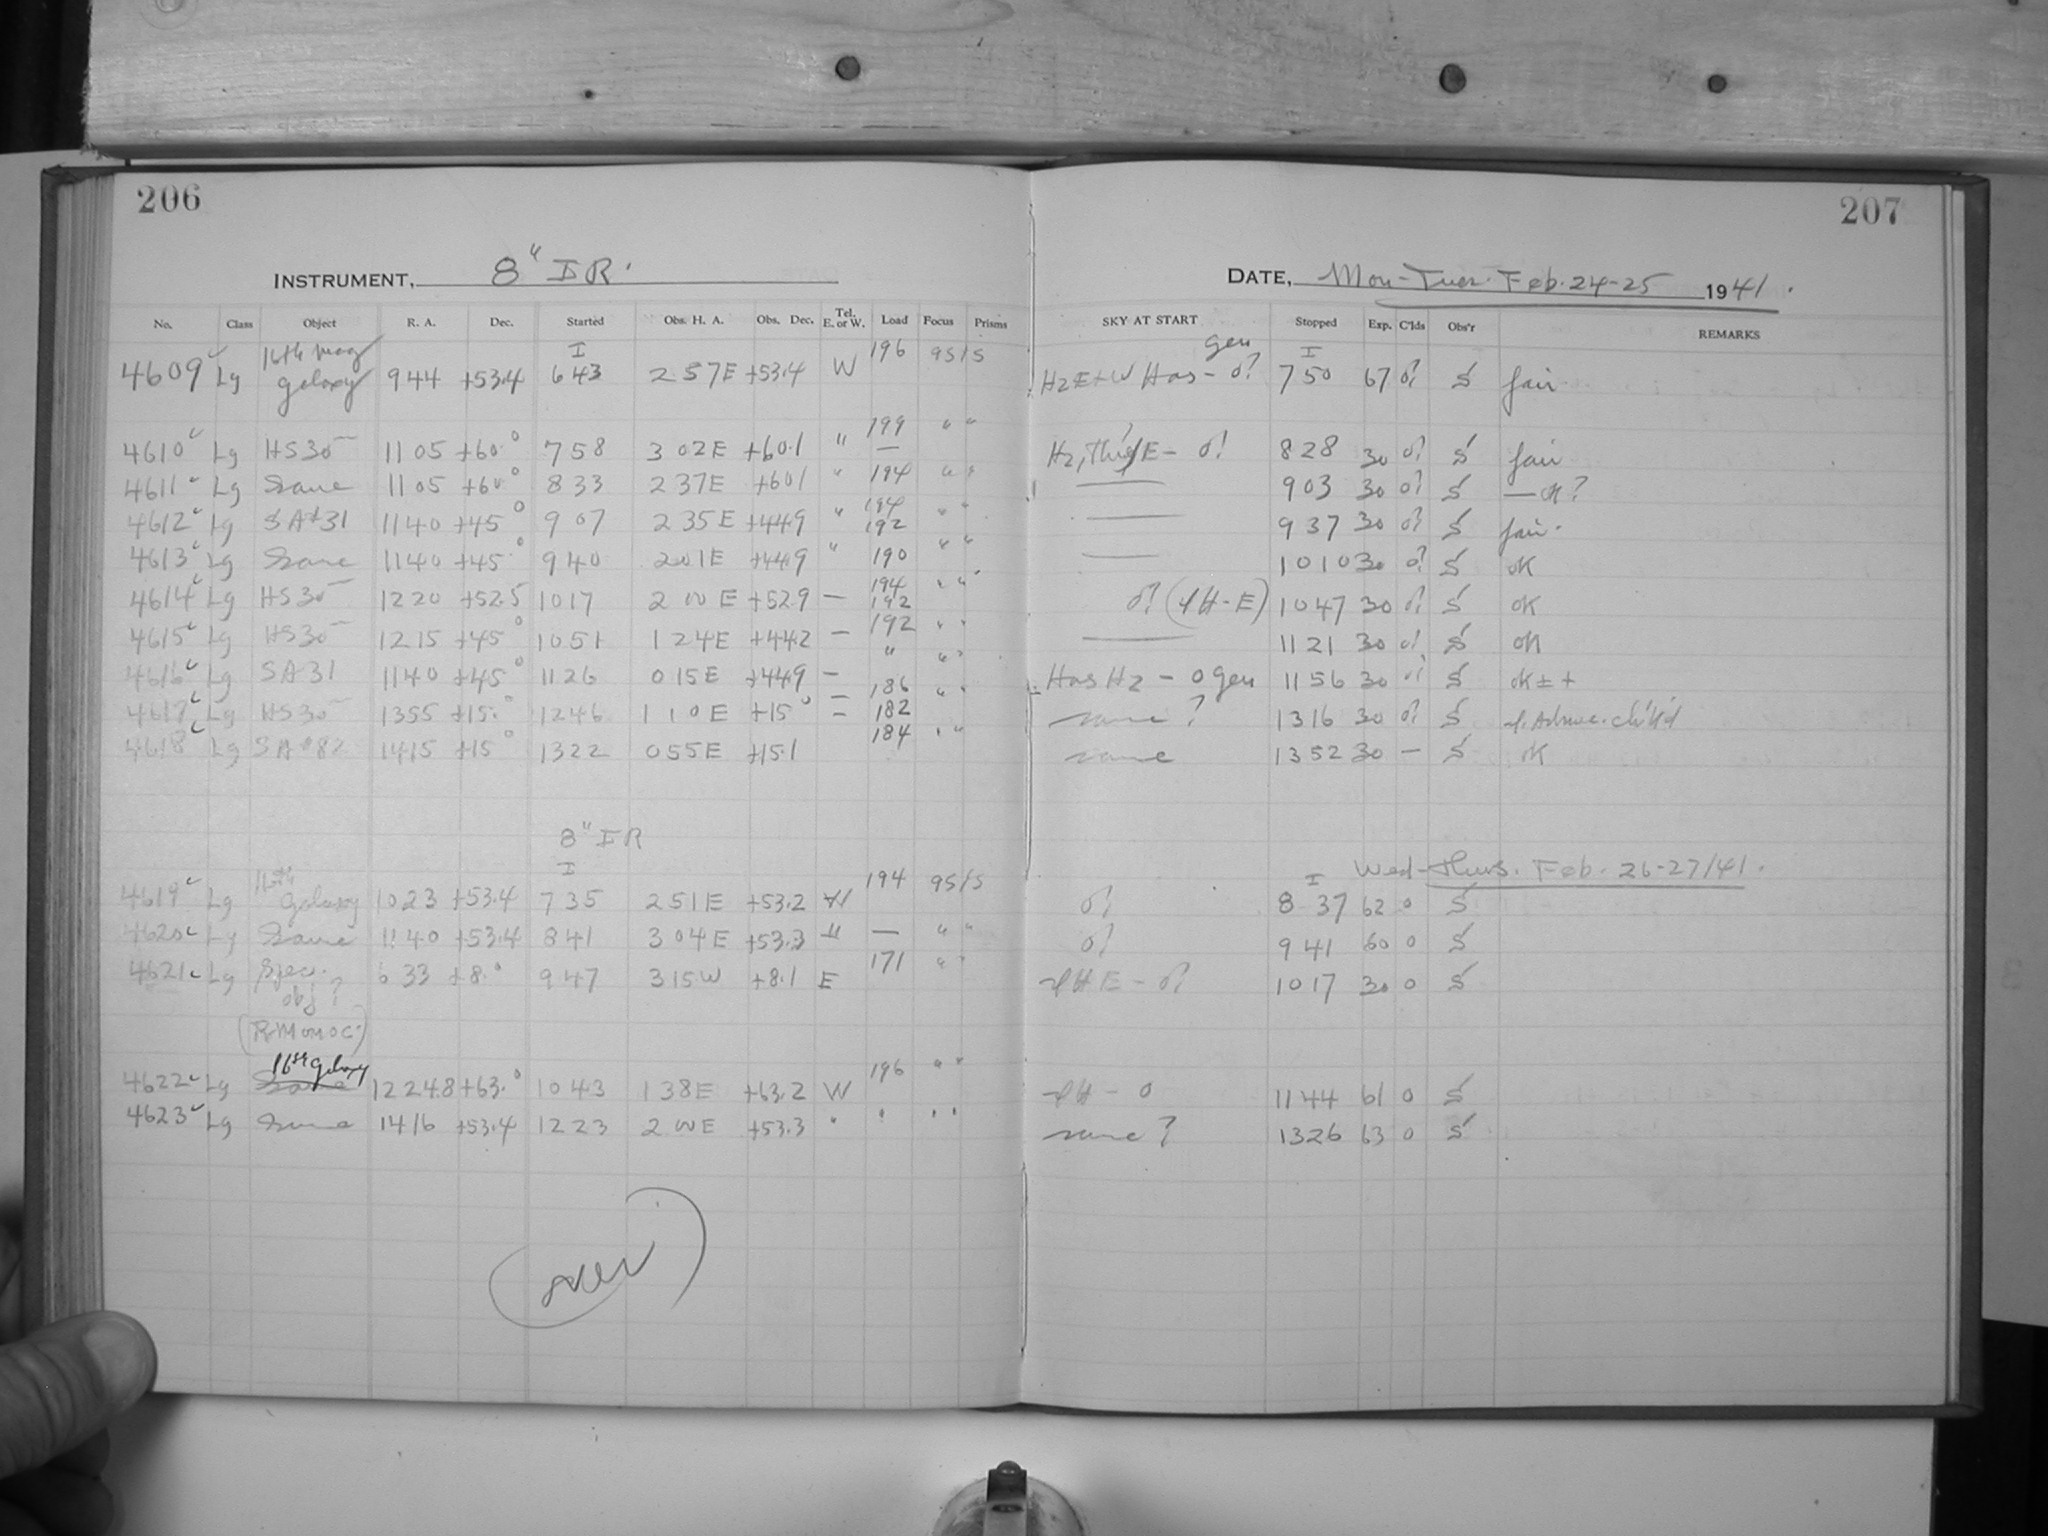 206
207
INSTRUMENT, 8" IR.
DATE, Mon-Tues. Feb. 24-25 1941.
No. Class Object R. A. Dec. Started Obs. H. A. Obs. Dec. Tel. E. or W. Load Focus Prisms SKY AT START Stopped Exp. C'lds Obs'r REMARKS
4609 Lg 16th mag galaxy 9 44 +53.4 6 43 2 57E +53.4 W 196 95/5 Hz E+W Has - 0? gen 7 50 67 0? S fair
4610 Lg HS35 11 05 +60.° 7 58 3 02E +60.1 " 199 " " Hz, E - 0? 8 28 30 0? S fair
4611 Lg Same 11 05 +60° 8 33 2 37E +60.1 " 194 " " — 9 03 30 0? S — OK?
4612 Lg SA#31 11 40 +45° 9 07 2 35E +44.9 " 194 192 " " — 9 37 30 0? S fair.
4613 Lg Same 11 40 +45.° 9 40 2 01E +44.9 " 190 " " — 10 10 30 0? S OK
4614 Lg HS35 12 20 +52.5 10 17 2 00E +52.9 — 194 192 " " 0? (H-E) 10 47 30 0? S OK
4615 Lg HS35 12 15 +45° 10 51 1 24E +44.2 — 192 " " — 11 21 30 0? S OK
4616 Lg SA31 11 40 +45° 11 26 0 15E +44.9 — " " " Has Hz - 0 gen 11 56 30 0? S OK ± +
4617 Lg HS35 13 55 +15.° 12 46 1 10E +15° = 186 182 " " same? 13 16 30 0? S
4618 Lg SA#82 14 15 +15° 13 22 0 55E +15.1 184 " " same 13 52 30 — S OK
8" IR
Wed-Thurs. Feb. 26-27/41.
4619 Lg 16th galaxy 10 23 +53.4 7 35 2 51E +53.2 W 194 95/5 0? 8 37 62 0 S
4620 Lg Same 11 40 +53.4 8 41 3 04E +53.3 " — " " 0? 9 41 60 0 S
4621 Lg Spec. obj? 6 33 +8.° 9 47 3 15W +8.1 E 171 " " H E - 0? 10 17 30 0 S
(R. Monoc.)
4622 Lg Same 16th galaxy 12 24.8 +63.° 10 43 1 38E +63.2 W 196 " " H - 0 11 44 61 0 S
4623 Lg Same 14 16 +53.4 12 23 2 00E +53.3 " " " " same? 13 26 63 0 S
(over)